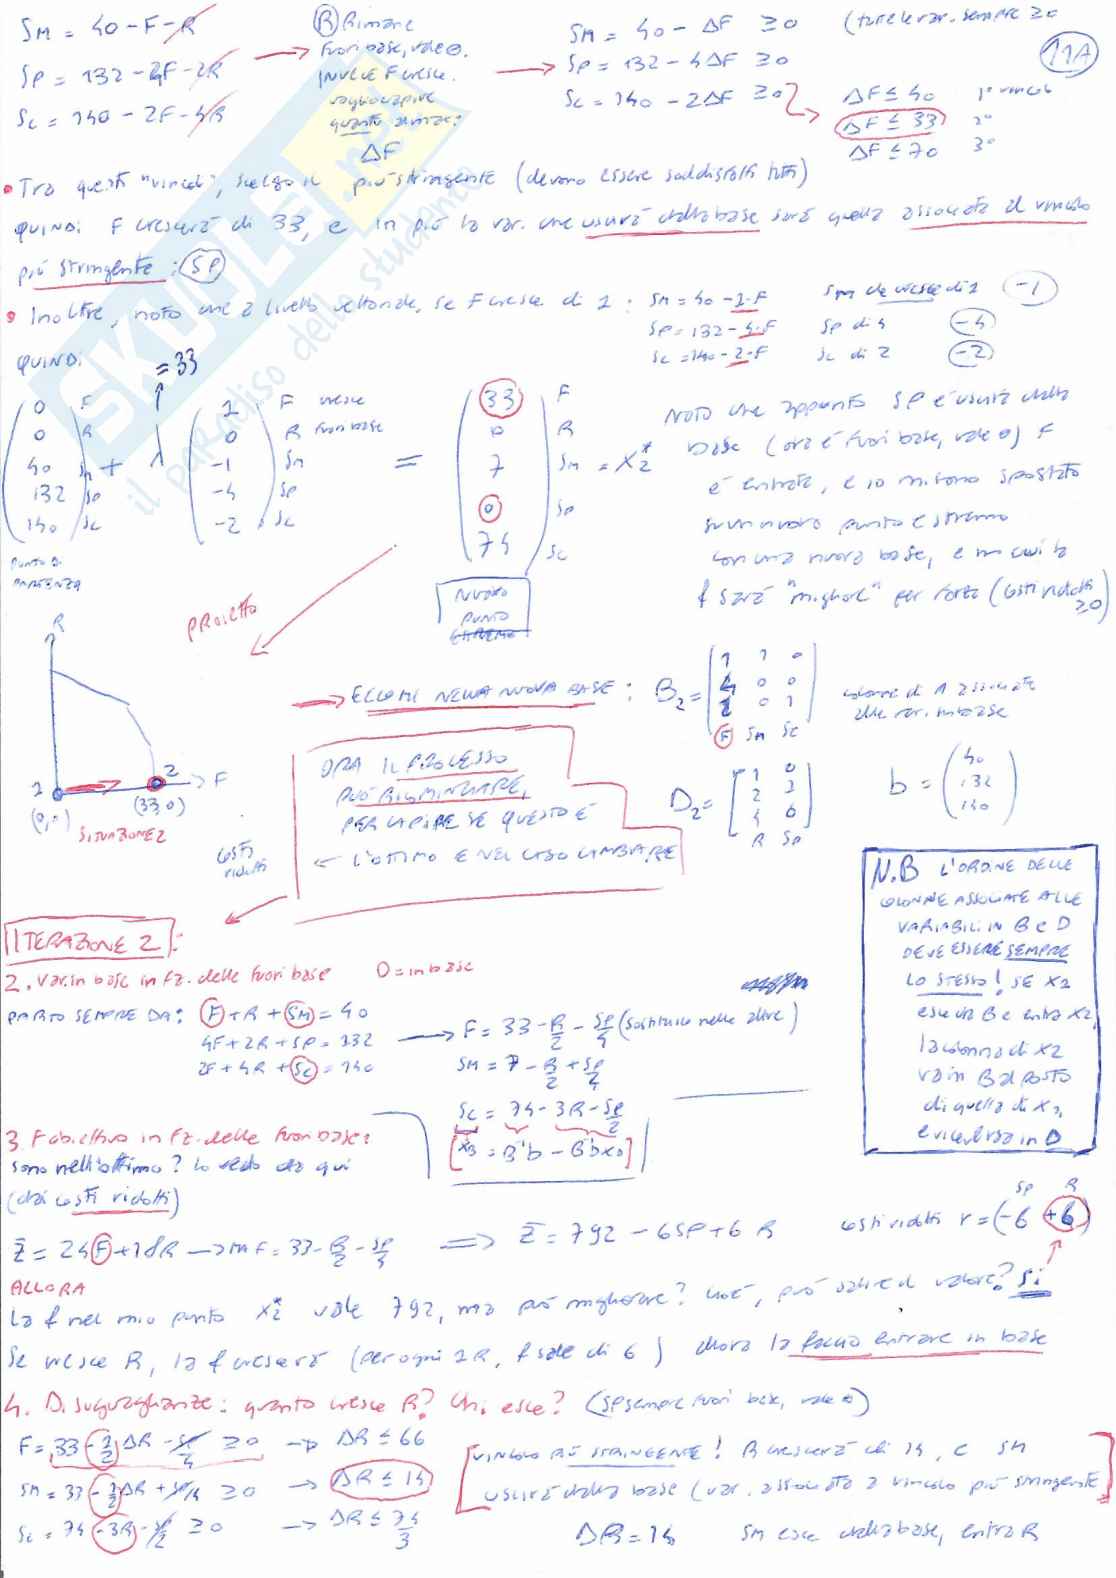 SM = 40 - F - R
SP = 132 - 4F - 2R
SC = 140 - 2F - 4R
(R) Rimane
fuori base, vale 0.
INVECE F cresce.
voglio capire
quanto
ΔF
SM = 40 - ΔF ≥ 0 (tutte le var. sempre ≥ 0
SP = 132 - 4ΔF ≥ 0
SC = 140 - 2ΔF ≥ 0
11A
ΔF ≤ 40 1° vincolo
ΔF ≤ 33 2°
ΔF ≤ 70 3°
• Tra questi "vincoli", scelgo il più stringente (devono essere soddisfatti tutti)
QUINDI F crescerà di 33, e in più la var. che uscirà dalla base sarà quella associata al vincolo
più stringente: SP
• Inoltre, noto che a livello vettoriale, se F cresce di 1: SM = 40 - 1·F SM decresce di 1 (-1)
SP = 132 - 4·F SP di 4 (-4)
SC = 140 - 2·F SC di 2 (-2)
QUINDI
= 33
0 F
0 R
40 SM
132 SP
140 SC
+ λ
1 F cresce
0 R fuori base
-1 SM
-4 SP
-2 SC
=
33 F
0 R
7 SM
0 SP
74 SC
= X2*
PUNTO DI
PARTENZA
NUOVO
PUNTO
ESTREMO
Noto che appunto SP è uscita dalla
base (ora è fuori base, vale 0) F
è entrata, e io mi sono spostato
su un nuovo punto estremo
con una nuova base, e in cui la
f sarà "migliore" per forza (costi ridotti
≥0)
PROIETTO
R
F
1
2
(0,0)
(33,0)
SITUAZIONE 2
→ ECCOMI NELLA NUOVA BASE: B2 =
1 1 0
4 0 0
2 0 1
F SM SC
colonne di A associate
alle var. in base
D2 =
1 0
2 1
4 0
R SP
b =
40
132
140
ORA IL PROCESSO
PUÒ RICOMINCIARE,
PER CAPIRE SE QUESTO È
← L'OTTIMO E NEL CASO CAMBIARE
costi
ridotti
N.B L'ORDINE DELLE
COLONNE ASSOCIATE ALLE
VARIABILI IN B e D
DEVE ESSERE SEMPRE
LO STESSO! SE X2
esce da B e entra X2,
la colonna di X2
va in B al posto
di quella di X1,
e viceversa in D
ITERAZIONE 2:
2. Var. in base in fz. delle fuori base O = in base
PARTO SEMPRE DA: F + R + SM = 40
4F + 2R + SP = 132
2F + 4R + SC = 140
→ F = 33 - R/2 - SP/4 (sostituisco nelle altre)
SM = 7 - R/2 + SP/4
SC = 74 - 3R - SP/2
[XB = B⁻¹b - B⁻¹DXD]
3. F obiettivo in fz. delle fuori base:
sono nell'ottimo? Lo vedo da qui
(dai costi ridotti)
Z̄ = 24F + 18R → ma F = 33 - R/2 - SP/4 ⟹ Z̄ = 792 - 6SP + 6R
SP R
costi ridotti r = (-6 +6)
ALLORA
La f nel mio punto X2* vale 792, ma può migliorare? cioè, può salire il valore? Sì
Se cresce R, la f crescerà (per ogni 1R, f sale di 6) allora la faccio entrare in base
4. Disuguaglianze: quanto cresce R? Chi esce? (SP sempre fuori base, vale 0)
F = 33 - 1/2 ΔR - SP/4 ≥ 0 → ΔR ≤ 66
SM = 33 - 1/2 ΔR + SP/4 ≥ 0 → ΔR ≤ 14
SC = 74 - 3R - SP/2 ≥ 0 → ΔR ≤ 74/3
VINCOLO PIÙ STRINGENTE! R crescerà di 14, e SM
uscirà dalla base (var. associata a vincolo più stringente
ΔR = 14 SM esce dalla base, entra R
SKUOLA.net
il paradiso dello studente